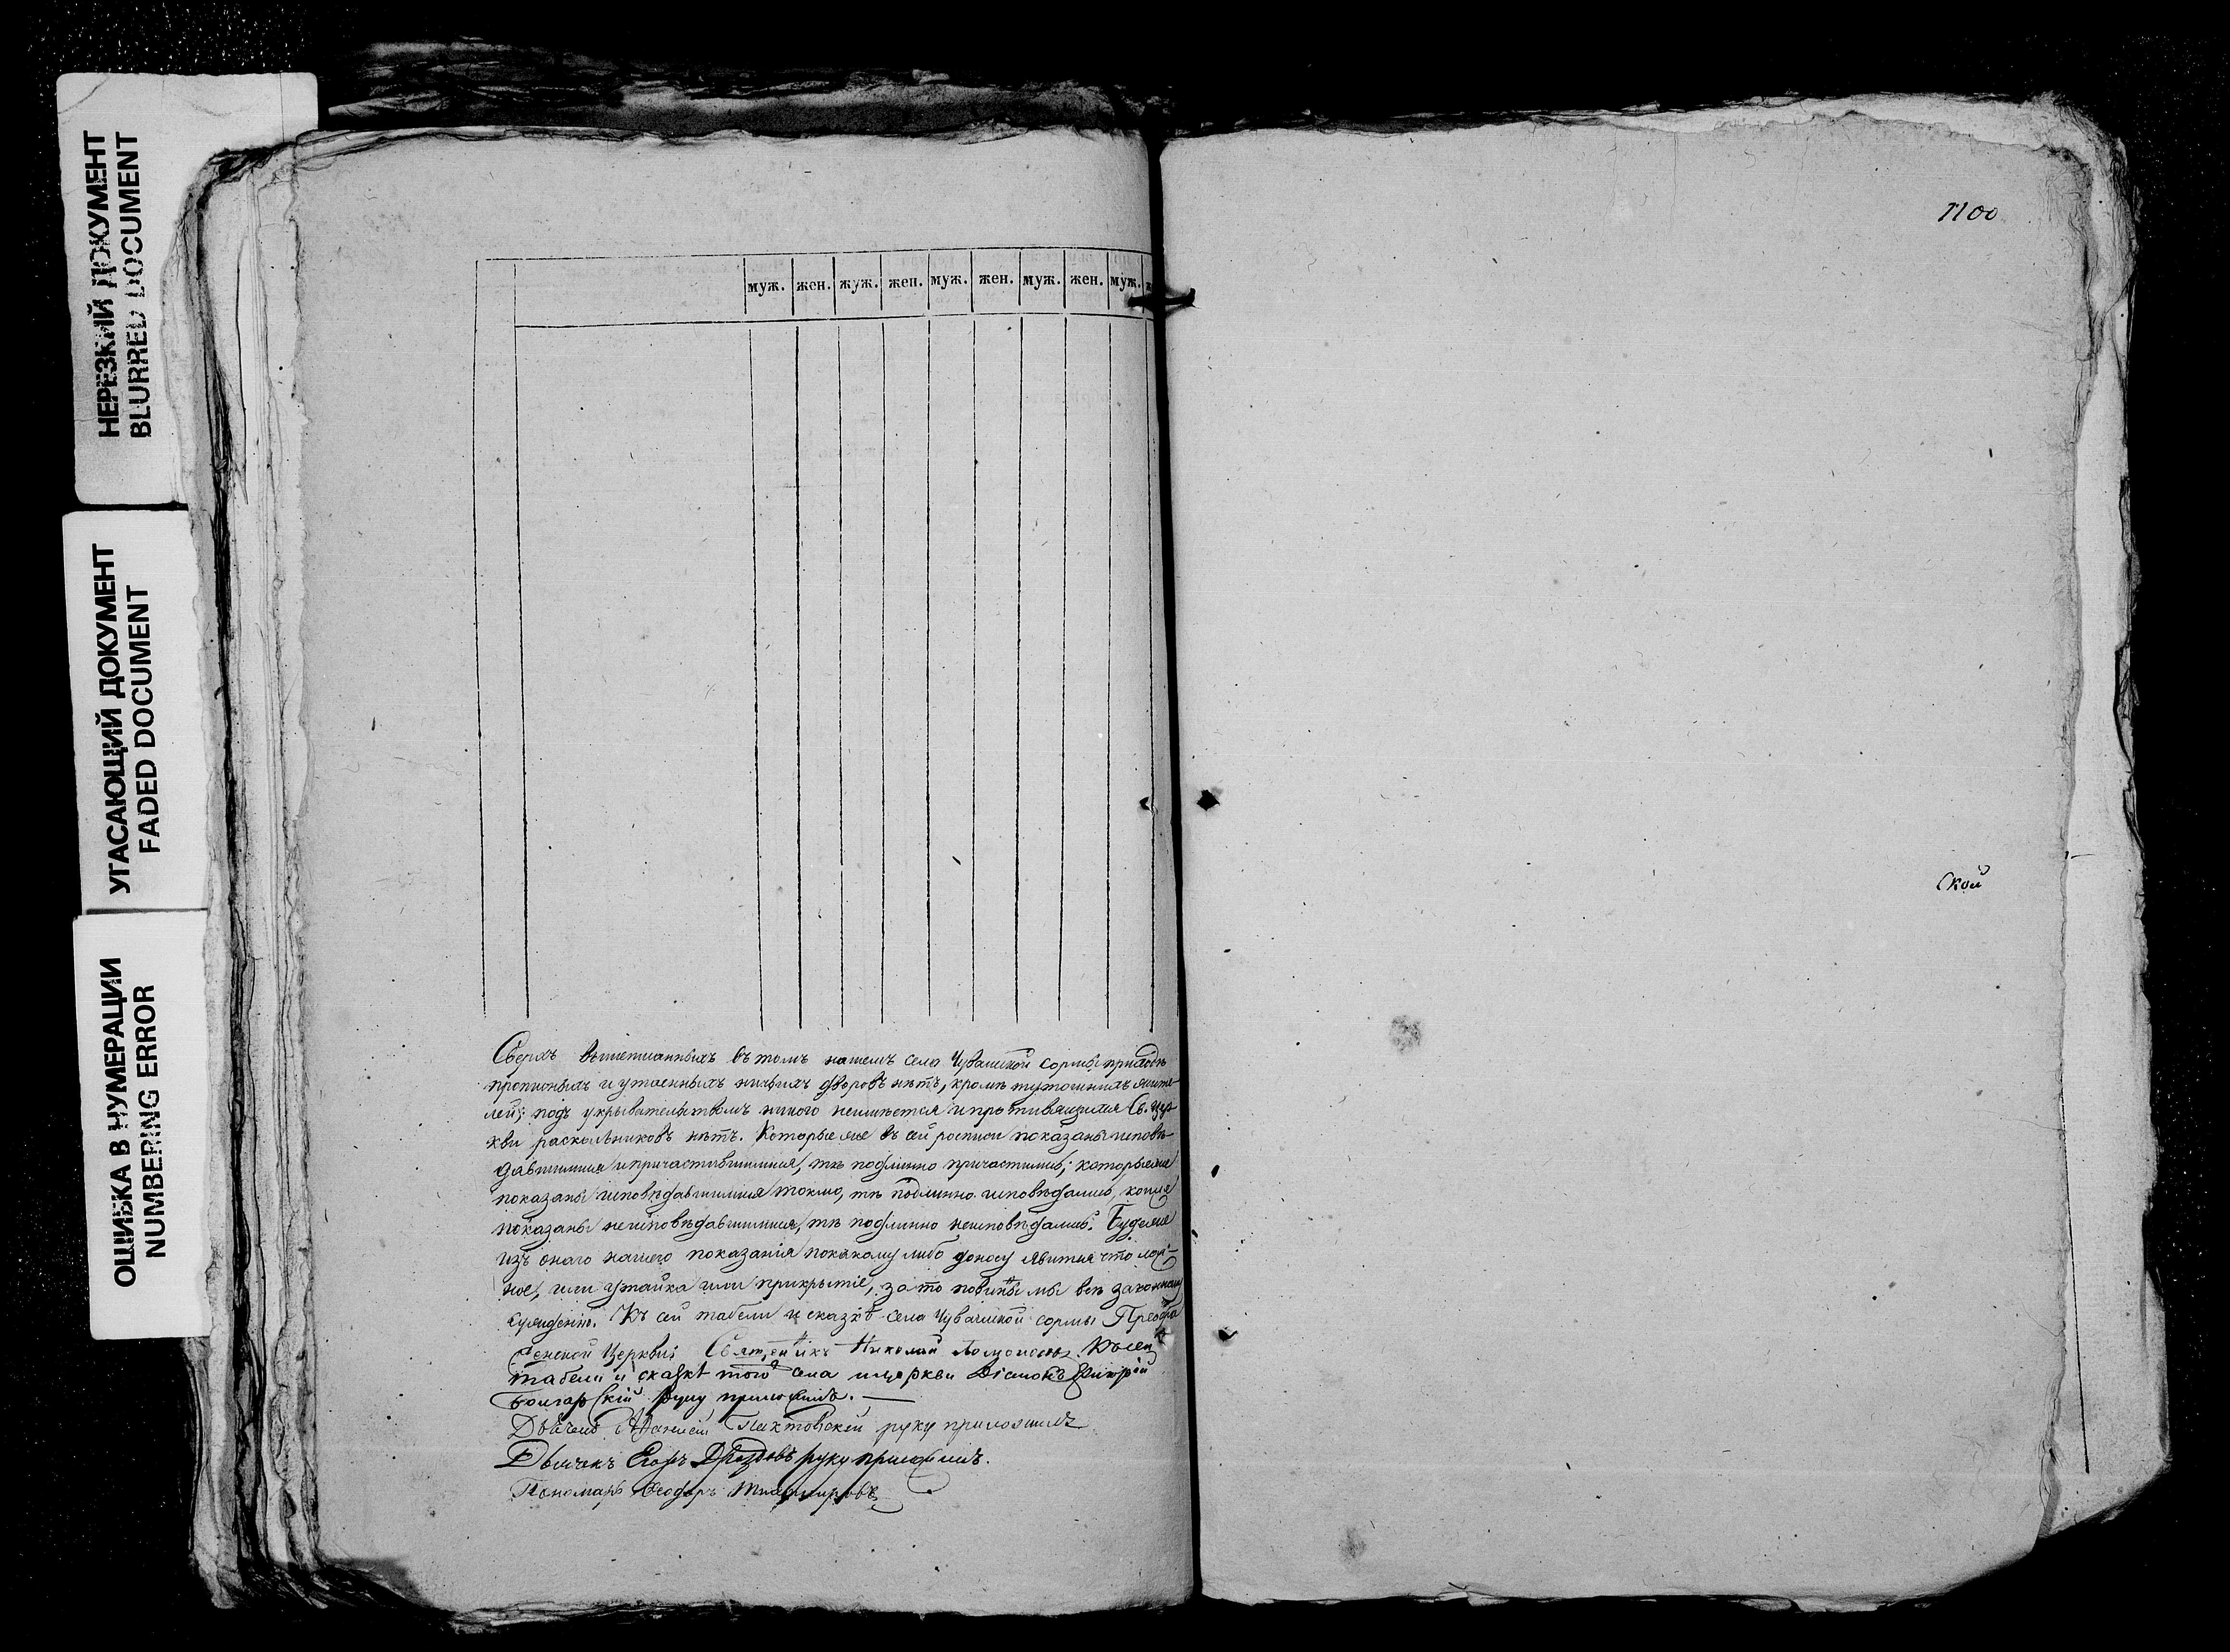 НЕРЕЗКИЙ ДОКУМЕНТ
BLURRED DOCUMENT
УГАСАЮЩИЙ ДОКУМЕНТ
FADED DOCUMENT
ОШИБКА В НУМЕРАЦИИ
NUMBERING ERROR
муж. жен. жуж. жен. муж. жен. муж. жен. муж.
Сверхъ вышеписанныхъ въ томъ нашемъ села Чувашской сормы приходѣ
прописныхъ и утаенныхъ ничьихъ дворовъ нѣтъ, кромѣ тутошнихъ жите-
лей; подъ укрывательствомъ никого неимѣется и противящихся Св. цер-
кви раскольниковъ нѣтъ. Которые же въ сей росписи показаны исповѣ-
давшимися и причастившимися, тѣ подлинно причастились; которые же
показаны исповѣдавшимися токмо, тѣ подлинно исповѣдались, кои же
показаны неисповѣдавшимися, тѣ подлинно неисповѣдались. Буде же
изъ онаго нашего показанія по какому либо доносу явится что лож-
ное, или утайка или прикрытіе, за то повинны мы всѣ законному
сужденію. Къ сей табели и сказкѣ села Чувашской сормы
Церкви Священникъ Николай Къ сей
табели и сказкѣ того села и церкви Діаконъ
руку приложилъ.
Дьячекъ руку приложилъ
Дьячекъ Егоръ Дроздовъ руку приложилъ.
Пономарь Ѳеодоръ
1100
ской